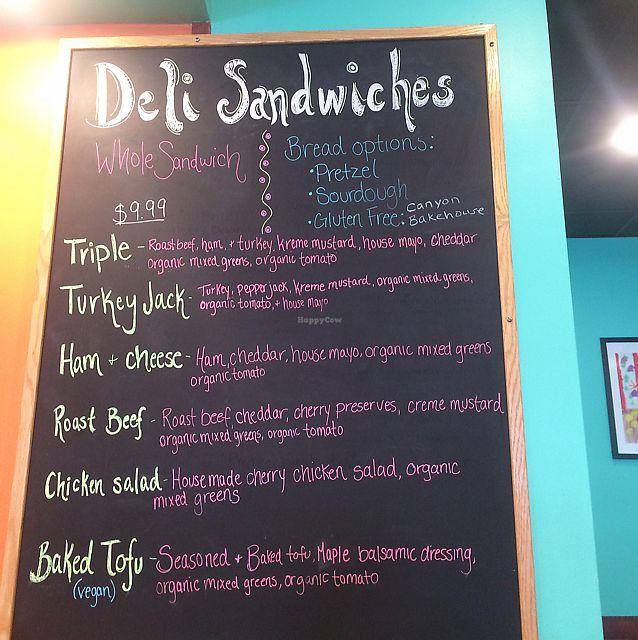 Deli Sandwiches
Whole Sandwich
$9.99
Bread options:
• Pretzel
• Sourdough
• Gluten Free: Canyon
Bakehouse
Triple - Roast beef, ham, + turkey, kreme mustard, house mayo, cheddar
organic mixed greens, organic tomato
Turkey Jack - Turkey, pepper jack, kreme mustard, organic mixed greens,
organic tomato, + house mayo
HappyCow
Ham + cheese - Ham, cheddar, house mayo, organic mixed greens
organic tomato
Roast Beef - Roast beef, cheddar, cherry preserves, creme mustard
organic mixed greens, organic tomato
Chicken salad - House made cherry chicken salad, organic
mixed greens
Baked Tofu - Seasoned + Baked tofu, Maple balsamic dressing,
(vegan) organic mixed greens, organic tomato